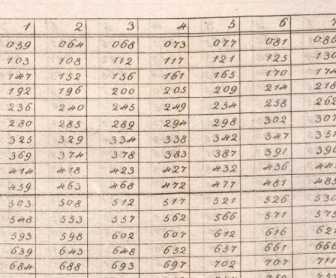 1 2 3 4 5 6
059 064 068 073 077 081 086
103 108 112 117 121 125 130
147 152 156 161 165 170 174
192 196 200 205 209 214 218
236 240 245 249 254 258 262
280 285 289 294 298 302 307
325 329 334 338 342 347 351
369 374 378 383 387 391 396
414 418 423 427 432 436
459 463 468 472 477 481 485
503 508 512 517 521 526 530
548 553 557 562 566 571
593 598 602 607 612 616 621
639 643 648 652 657 661 666
684 688 693 697 702 707